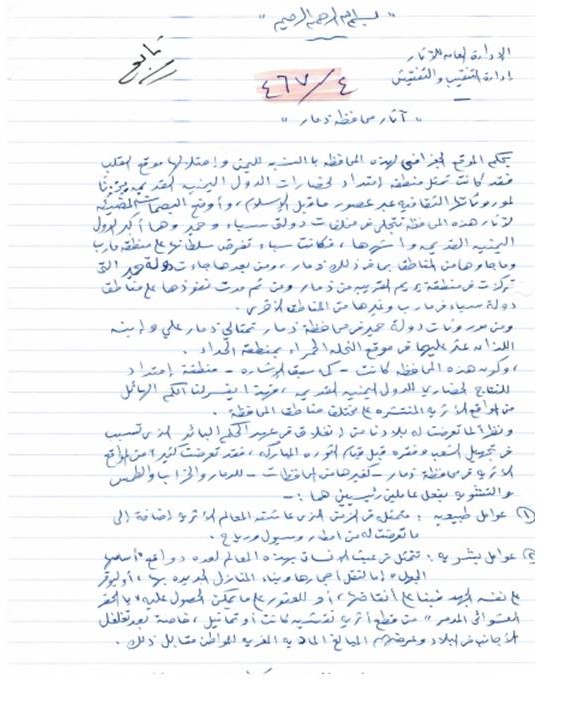 " بسم الله الرحمن الرحيم "
الإدارة العامة للآثار
إدارة التنقيب والتفتيش
٤/٤٦٧
" آثار محافظة ذمار "
بحكم الموقع الجغرافي لهذه المحافظة بالنسبة لليمن وإحتلالها موقع القلب
فقد كانت تمثل منطقة إمتداد لحضارات الدول اليمنية القديمة
لموروثاتها الثقافية عبر عصور ماقبل الإسلام، وأوضح البصمات المضيئة
لآثار هذه المحافظة تتجلى في مخلفات دولتي سبأ و حمير وهما أكبر الدول
اليمنية القديمة وأشهرها، فكانت سبأ تفرض سلطانها على منطقة مارب
وماجاورها من المناطق بما في ذلك ذمار، ومن بعدها جاءت دولة حمير التي
تركزت في منطقة يريم القريبة من ذمار ومن ثم مدت نفوذها على مناطق
دولة سبأ في مارب وغيرها من المناطق الأخرى.
ومن موروثات دولة حمير في محافظة ذمار تمثالي ذمار علي وإبنه
اللذان عثر عليهما في موقع النخلة الحمراء بمنطقة الحداء.
، وكون هذه المحافظة كانت - كما سبق الإشارة - منطقة إمتداد
للنتاج الحضاري للدول اليمنية القديمة، فهذا يفسر لنا الكم الهائل
من المواقع الأثرية المنتشرة في مختلف مناطق المحافظة.
ونظراً لما تعرضت له بلادنا من إنغلاق في عهد الحكم البائد الذي تسبب
في تجهيل الشعب وفقره قبل قيام الثورة المباركة، فقد تعرضت كثير من المواقع
الأثرية في محافظة ذمار - كغيرها من المحافظات - للدمار والخراب والطمس
والتشويه بفعل عاملين رئيسيين هما :-
١) عوامل طبيعية : تتمثل في الزمن الذي عاشته المعالم الأثرية إضافة إلى
ما تعرضت له من أمطار وسيول ورياح.
٢) عوامل بشرية : تتمثل في عبث الإنسان بهذه المعالم لعدة دوافع "أساسها
الجهل" إما لنقل أحجارها وبناء المنازل الجديدة بها، أو ليوفر
على نفسه الجهد فبنا على أنقاضها، أو للعثور على ما يمكن الحصول عليه "بالحفر
العشوائي المدمر" من قطع أثرية نقشيه كانت أو تماثيل، خاصة بعد تغلغل
الأجانب في البلاد وعرضهم المبالغ المادية المغرية للمواطن مقابل ذلك.